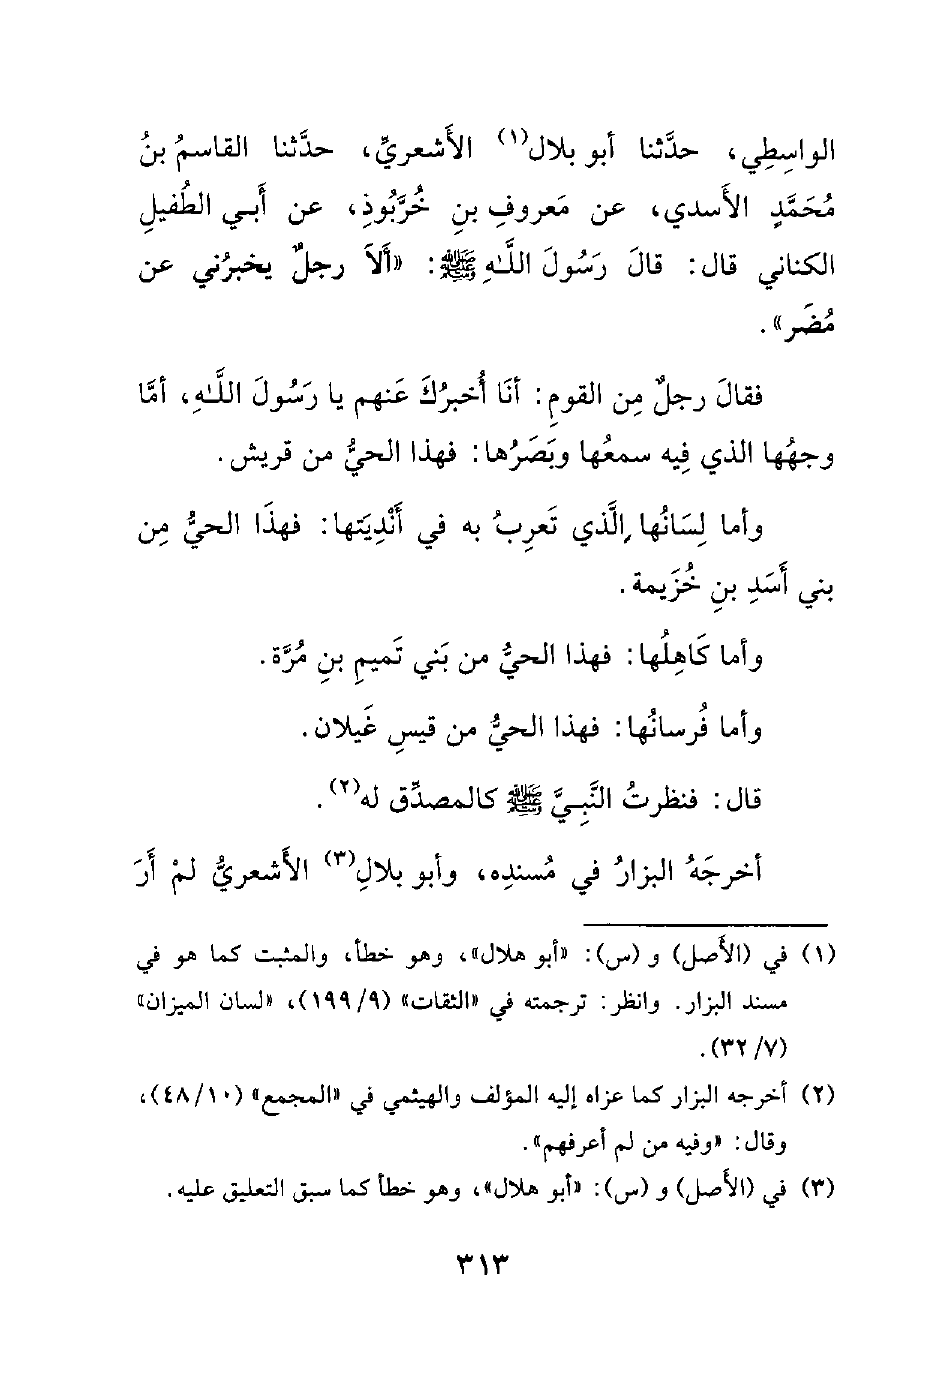 الواسِطِي، حدَّثنا أبو بلال(١) الأَشعريِّ، حدَّثنا القاسمُ بنُ
مُحَمَّدٍ الأَسدي، عن مَعروفِ بنِ خُرَّبُوذِ، عن أَبي الطُفيلِ
الكناني قال: قالَ رَسُولَ اللَّهِ ﷺ: «أَلاَ رجلٌ يخبرُني عن
مُضَر».
فقالَ رجلٌ مِن القومِ: أنَا أُخبرُكَ عَنهم يا رَسُولَ اللَّهِ، أمَّا
وجهُها الذي فِيه سمعُها وبَصَرُها: فهذا الحيُّ من قريش.
وأما لِسَانُها الَّذي تَعرِبُ به في أَنْدِيَتها: فهذَا الحيُّ مِن
بني أَسَدِ بنِ خُزَيمة.
وأما كَاهِلُها: فهذا الحيُّ من بَني تَميمِ بنِ مُرَّة.
وأما فُرسانُها: فهذا الحيُّ من قيسِ غَيلان.
قال: فنظرتُ النَّبِيَّ ﷺ كالمصدِّق له(٢).
أخرجَهُ البزارُ في مُسندِه، وأبو بلالِ(٣) الأَشعريُّ لمْ أَرَ
(١) في (الأَصل) و (س): «أبو هلال»، وهو خطأ، والمثبت كما هو في
مسند البزار. وانظر: ترجمته في «الثقات» (١٩٩/٩)، «لسان الميزان»
(٣٢/٧).
(٢) أخرجه البزار كما عزاه إليه المؤلف والهيثمي في «المجمع» (٤٨/١٠)،
وقال: «وفيه من لم أعرفهم».
(٣) في (الأَصل) و (س): «أبو هلال»، وهو خطأ كما سبق التعليق عليه.
٣١٣